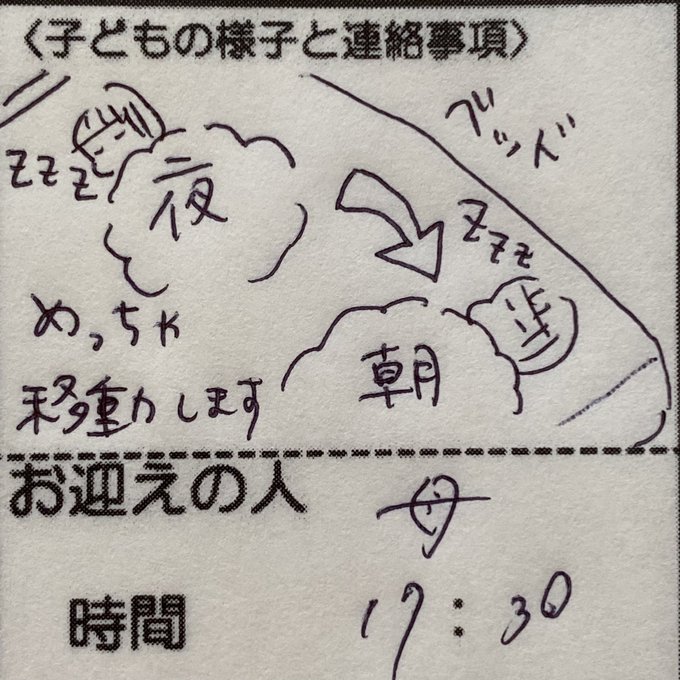 〈子どもの様子と連絡事項〉
ベッド
zzz
夜
zzz
めっちゃ
移動します
朝
お迎えの人 母
時間 17:30